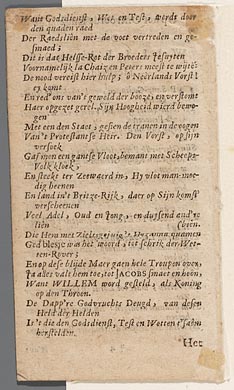 Want Godsdienst, Wet en Test, werdt door
den quaden raed
Der Raedslien met de voet vertreden en ge-
smaed;
Dit is dat Helsse-Rot der Broeders Jesuyten
Voornamelijk la Chaize en Peters meest te wijte:
De nood vereist hier hulp; ô Neerlands Vorst!
ey komt
En red ons van't geweld der booze, en verstomt
Haer opgezet gerel. Sijn Hoogheid wierd bewo-
gen
Met een den Staet, gesien de tranen in de oogen
Van't Protestantse Heir. Den Vorst, op sijn
versoek
Gaf mon een gantse Vloot, bemant met Scheeps-
Volk kloek,
En steekt ter Zeewaerd in, Hy vloot man-
noedig heenen
En land in't Britze-Rijk, daer op Sijn komst
verscheenen
Veel Adel, Oud en Jong, en duysend and're
lien
Die Hem met
quamen
God blesje was het woord, tot schrik der Wet-
ten-Rover;
En op dese blijde Maer gaen hele Troupen over,
Ja alles valt hem toe, tot JACOBS smaet en hoon,
Want WILLEM word gesteld, als Koning
op den Throon.
De Dapp're Godvruchts Deugd, van desen
Held der Helden
Is't die den Godsdienst, Test en Wetten t'saem
herstelden.
Het